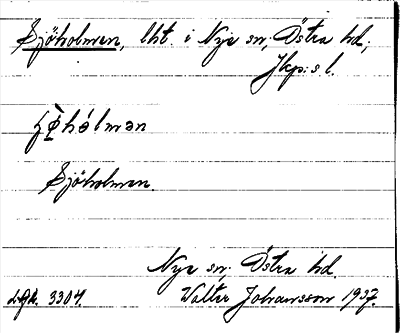 Sjöholmen, lht. i Nye sn; Östra hd;
Jkp:s l.
Sjöholmen.
Nye sn; Östra hd.
Walter Johansson 1937.